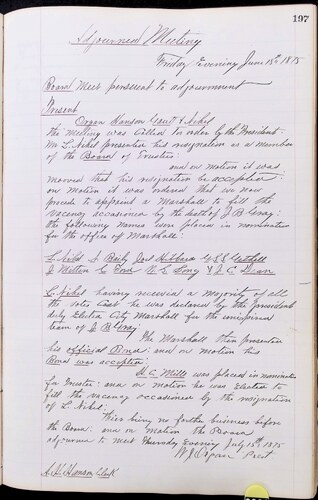 197
Adjourned Meeting
Friday Evening June 18th 1875
Board Meet persuent to adjournment
Present
Organ Hanson & Nickel
the Meeting was Called to order by the President
Mr L. Nickel presented his resignation as a member
of the Board of Trustees:
and on motion it was
moved that his resignation be accepted
on Motion it was ordered that we now
precede to appoint a Marshall to fill the
vacancy occasioned by the death of J B Gray:
the following names were placed in nomination
for the office of Marshall:
L. Nickel S. Baily Joel Hibbard
J Millen E Ford N. E. Long & J. C. Dean
L. Nickel having received a Majority of all
the votes Cast he was declared by the president
duly Elected City Marshall for the unexpired
term of J B Gray
The Marshall then presented
his official Bond: and on motion his
Bond was accepted
H. C. Mills was placed in nomination
for Trustee: and on motion he was Elected to
fill the vacancy occasioned by the resignation
of L. Nickel:
Their being no further business before
the Board: and on motion the Board
adjourned to meet Thursday Evening July 15th 1875
Organ Prest
A. H. Hanson Clerk